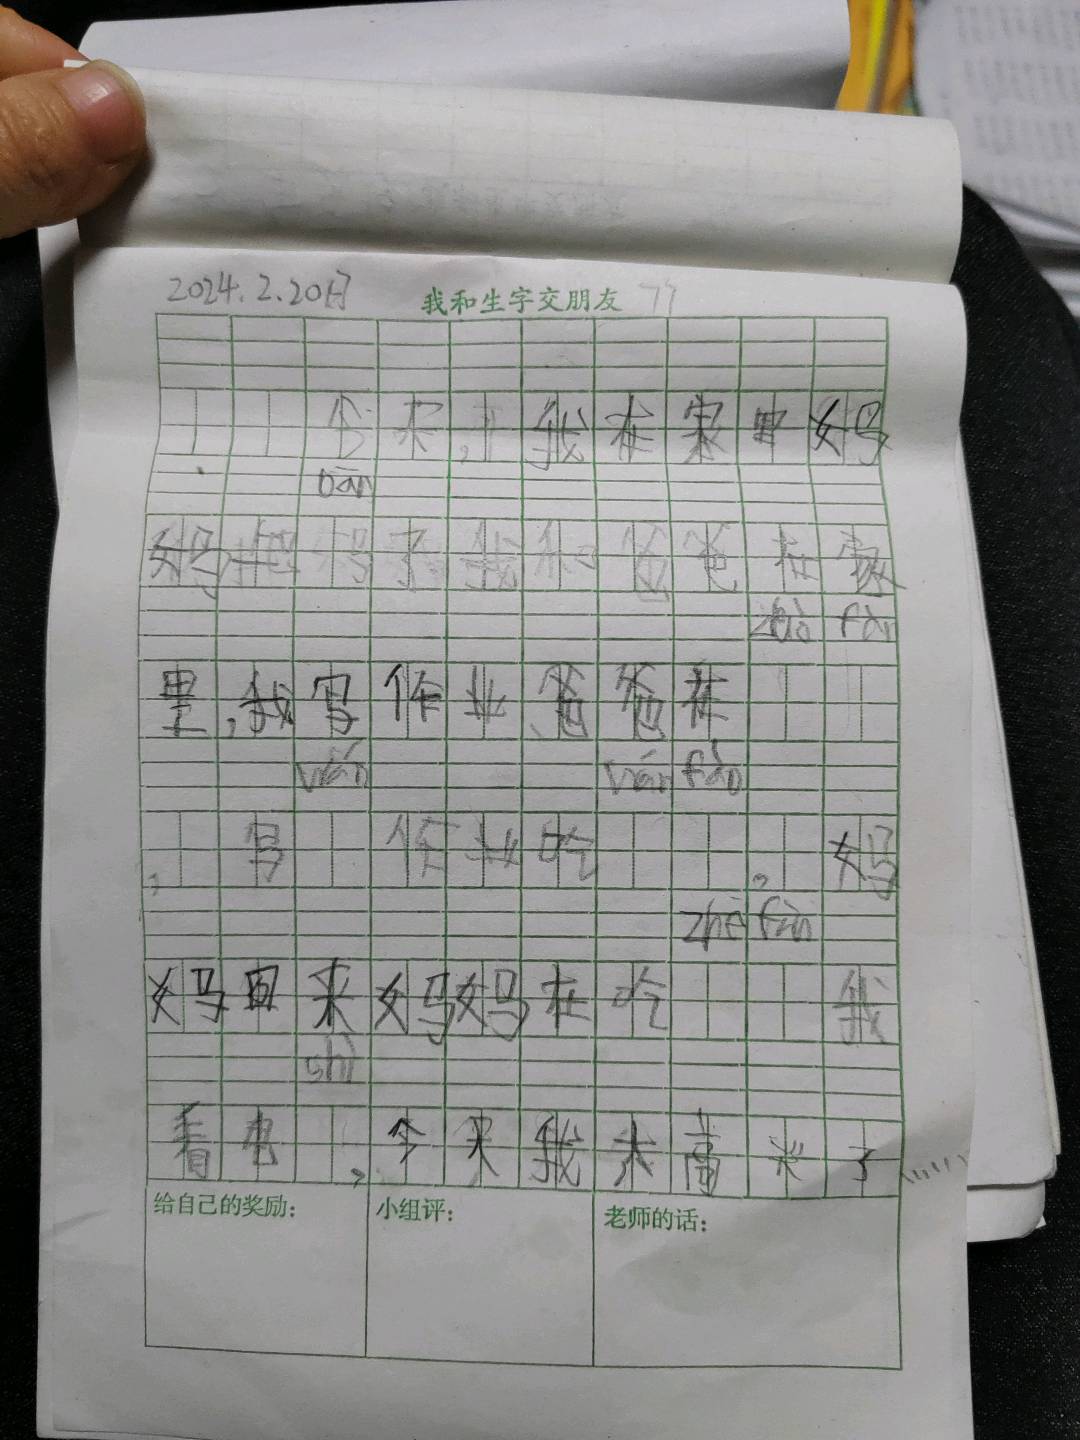 2024.2.20日 我和生字交朋友
今天,我在家里妈
bàn
妈 妈了我和爸爸在家
zhǔ fàn
里,我写作业爸爸在
wán wán fàn
,写 作业吃 ,妈
zhè fàn
妈回来妈妈在吃 我
shì
看电 ,今天我太高兴了
给自己的奖励: 小组评: 老师的话: